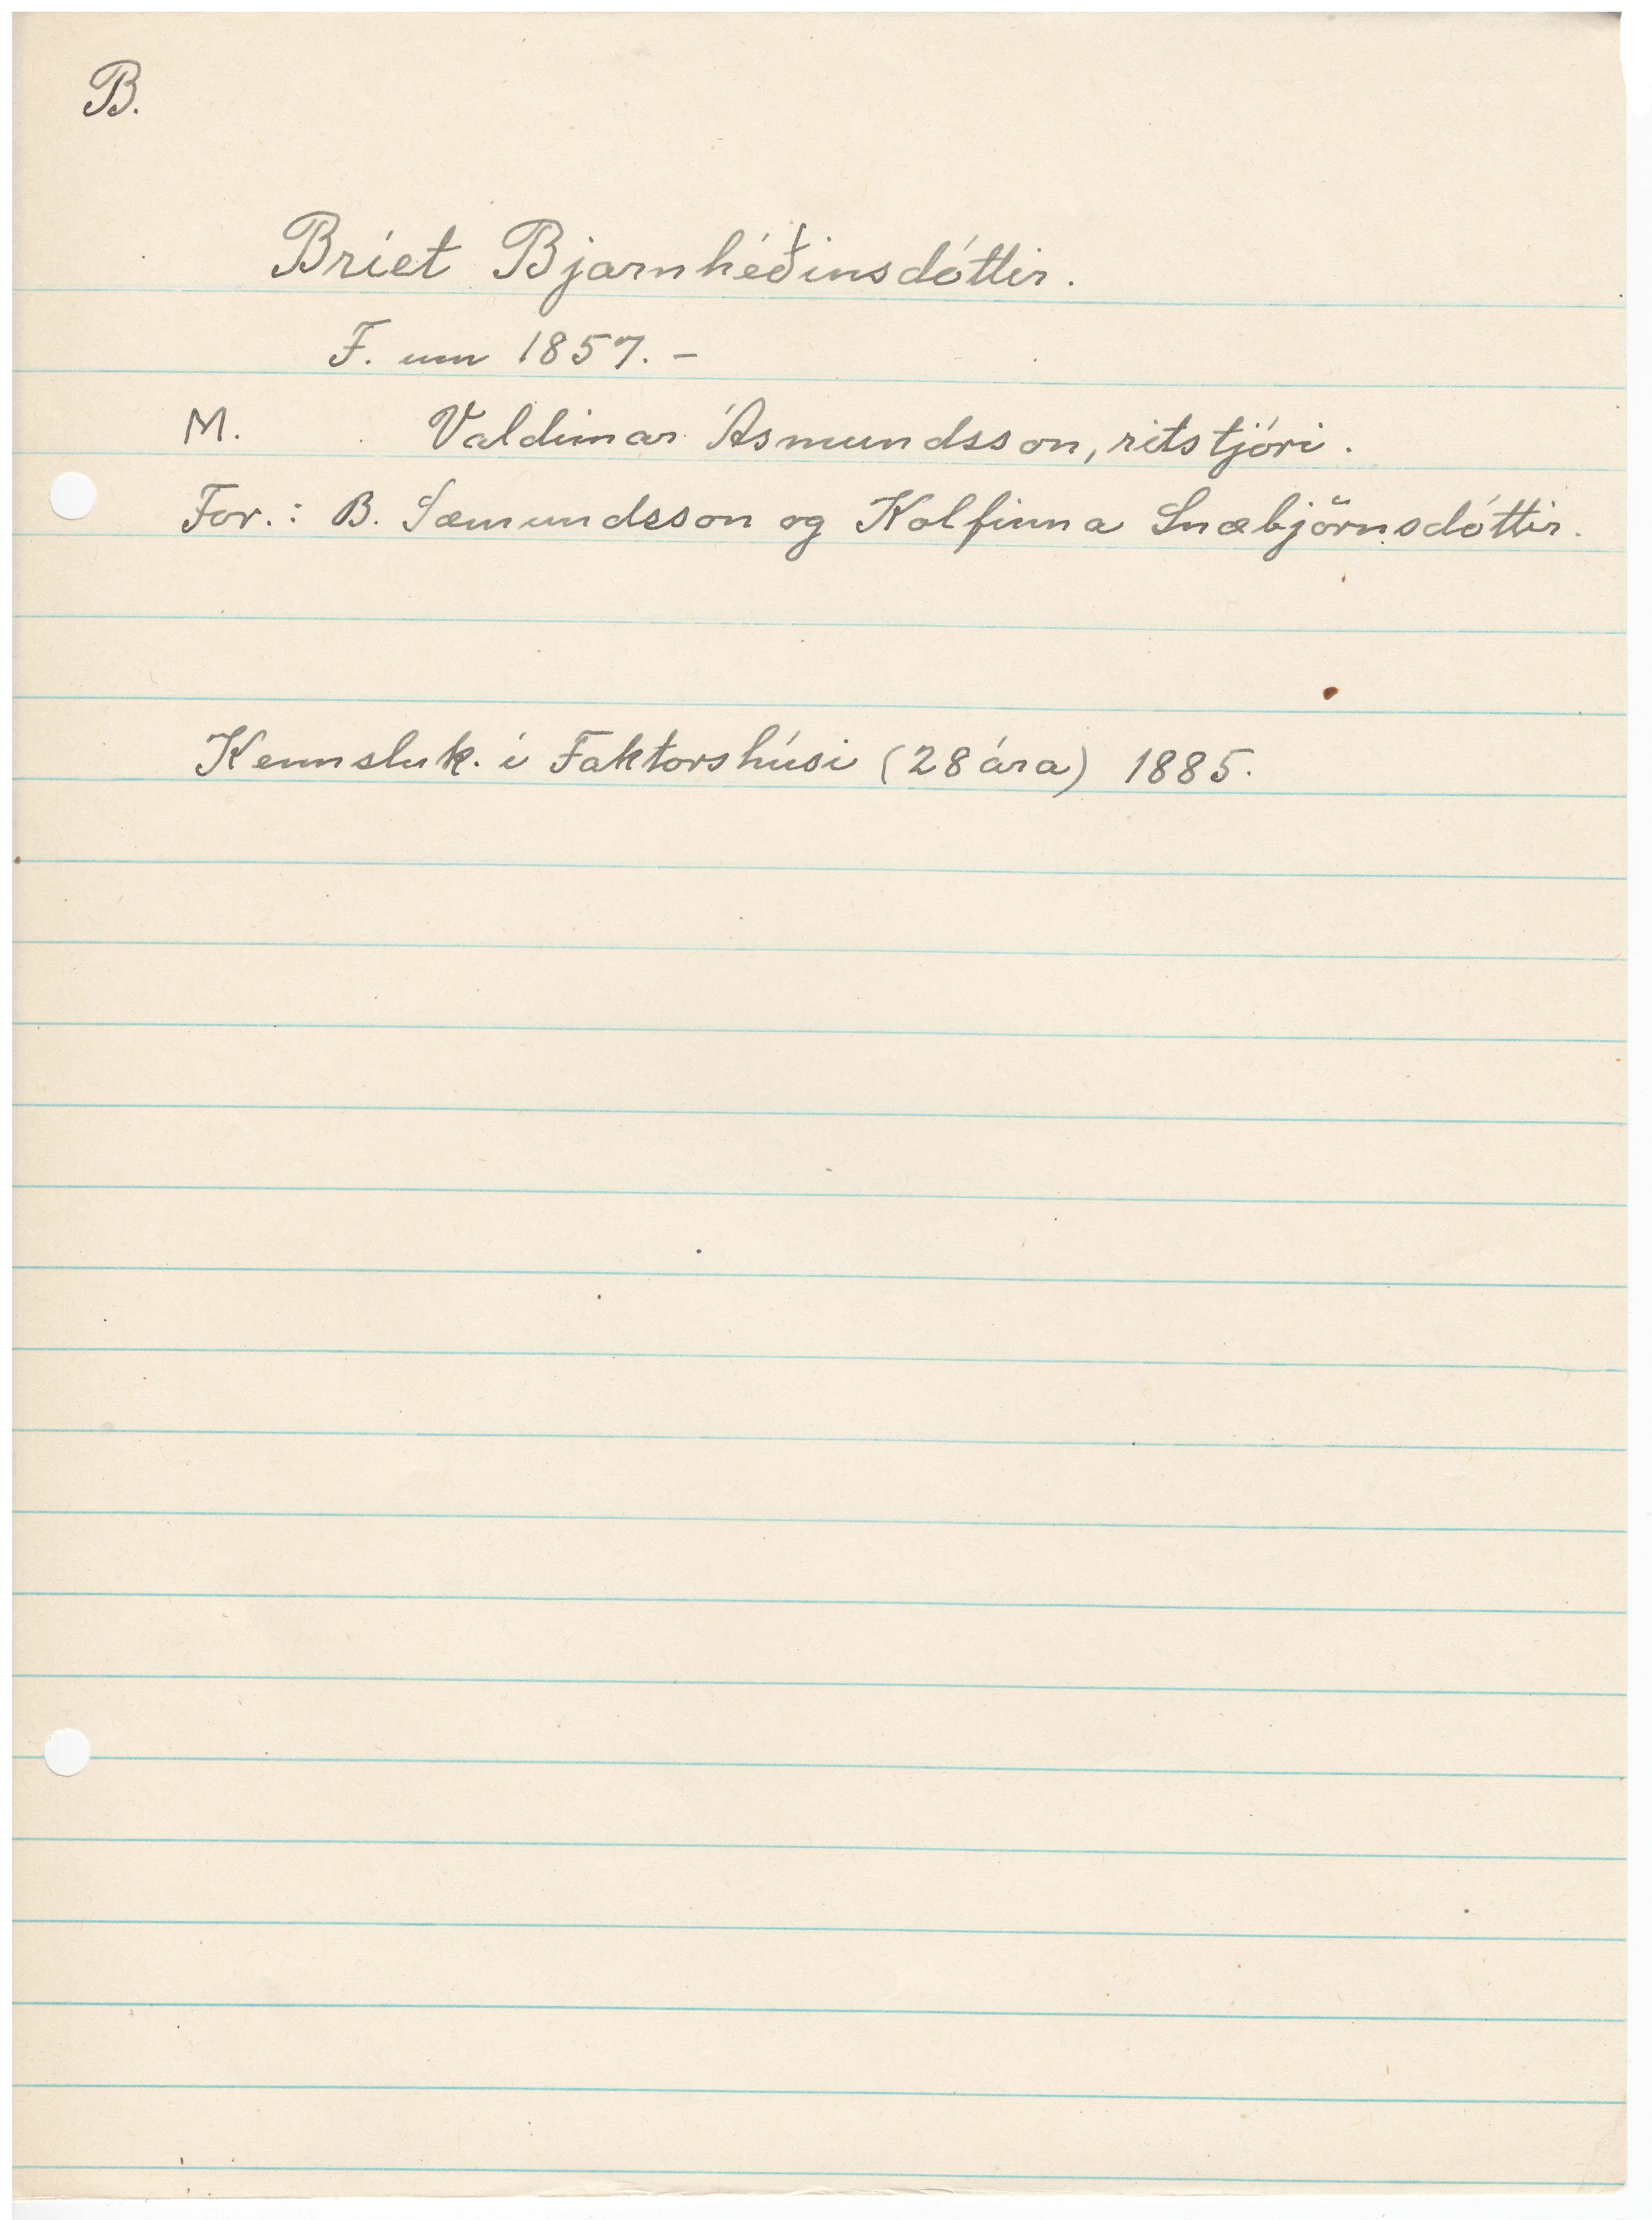 B.
Bríet Bjarnhéðinsdóttir.
F. um 1857. -
M. Valdimar Ásmundsson, ritstjóri.
For.: B. Sæmundsson og Kolfinna Snæbjörnsdóttir.
Kennsluk. í Faktorshúsi (28 ára) 1885.